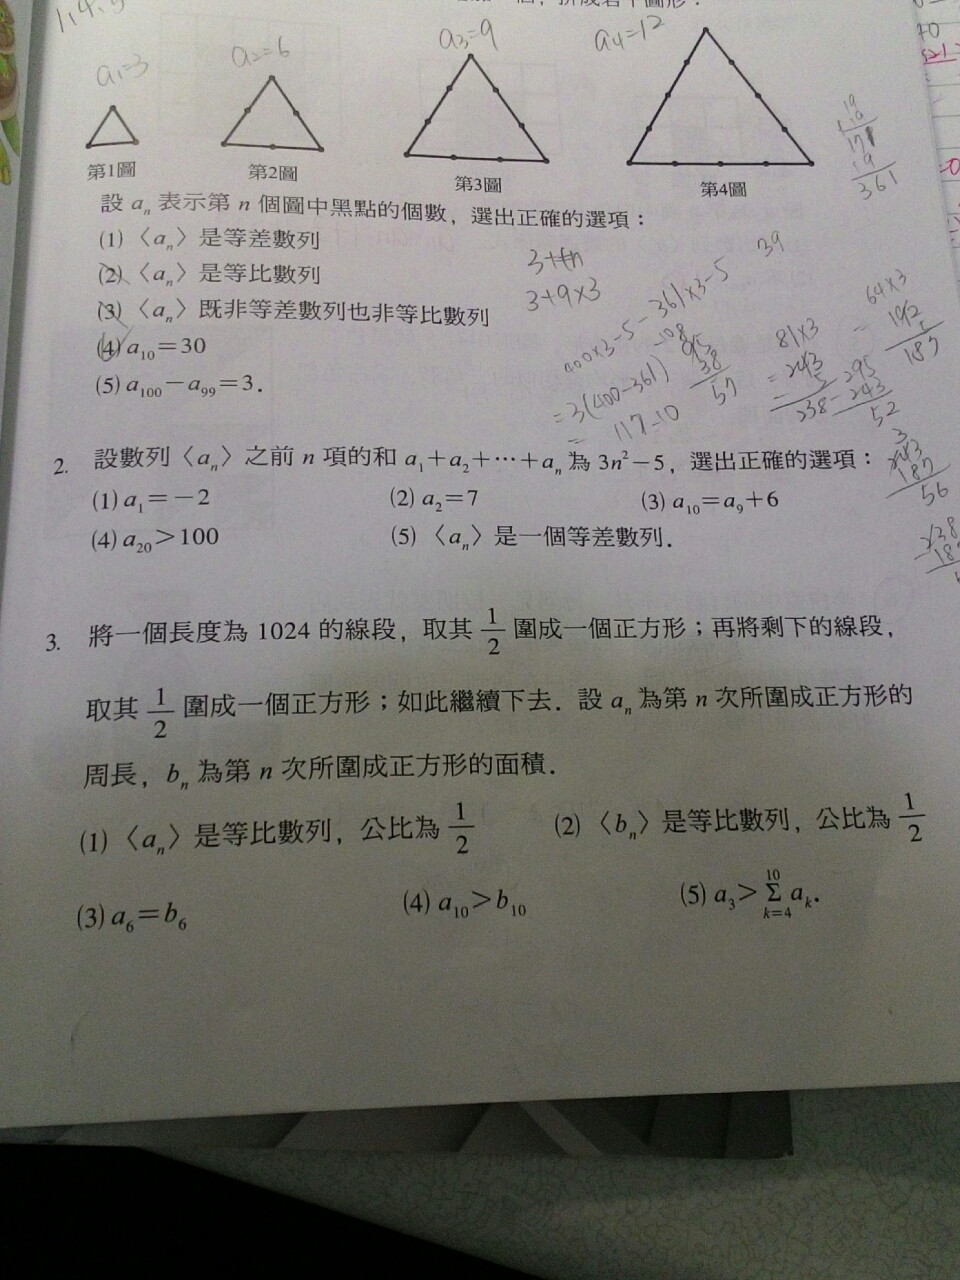 a₁=3
a₂=6
a₃=9
a₄=12
第1圖
第2圖
第3圖
第4圖
19
171
19
361
設 aₙ 表示第 n 個圖中黑點的個數，選出正確的選項：
(1)〈aₙ〉是等差數列
(2)〈aₙ〉是等比數列
(3)〈aₙ〉既非等差數列也非等比數列
(4) a₁₀＝30
(5) a₁₀₀－a₉₉＝3．
3+9×3
39
400×3-5-361×3-5
=3(400-361)
117-10
95
38
57
81×3
=243
5
238
295
243
52
64×3
192
5
187
187
56
2. 設數列〈aₙ〉之前 n 項的和 a₁＋a₂＋⋯＋aₙ 為 3n²－5，選出正確的選項：
(1) a₁＝－2 (2) a₂＝7 (3) a₁₀＝a₉＋6
(4) a₂₀＞100 (5)〈aₙ〉是一個等差數列．
3. 將一個長度為 1024 的線段，取其 1/2 圍成一個正方形；再將剩下的線段，
取其 1/2 圍成一個正方形；如此繼續下去．設 aₙ 為第 n 次所圍成正方形的
周長，bₙ 為第 n 次所圍成正方形的面積．
(1)〈aₙ〉是等比數列，公比為 1/2 (2)〈bₙ〉是等比數列，公比為 1/2
(3) a₆＝b₆ (4) a₁₀＞b₁₀ (5) a₃＞Σ_{k=4}^{10} aₖ．